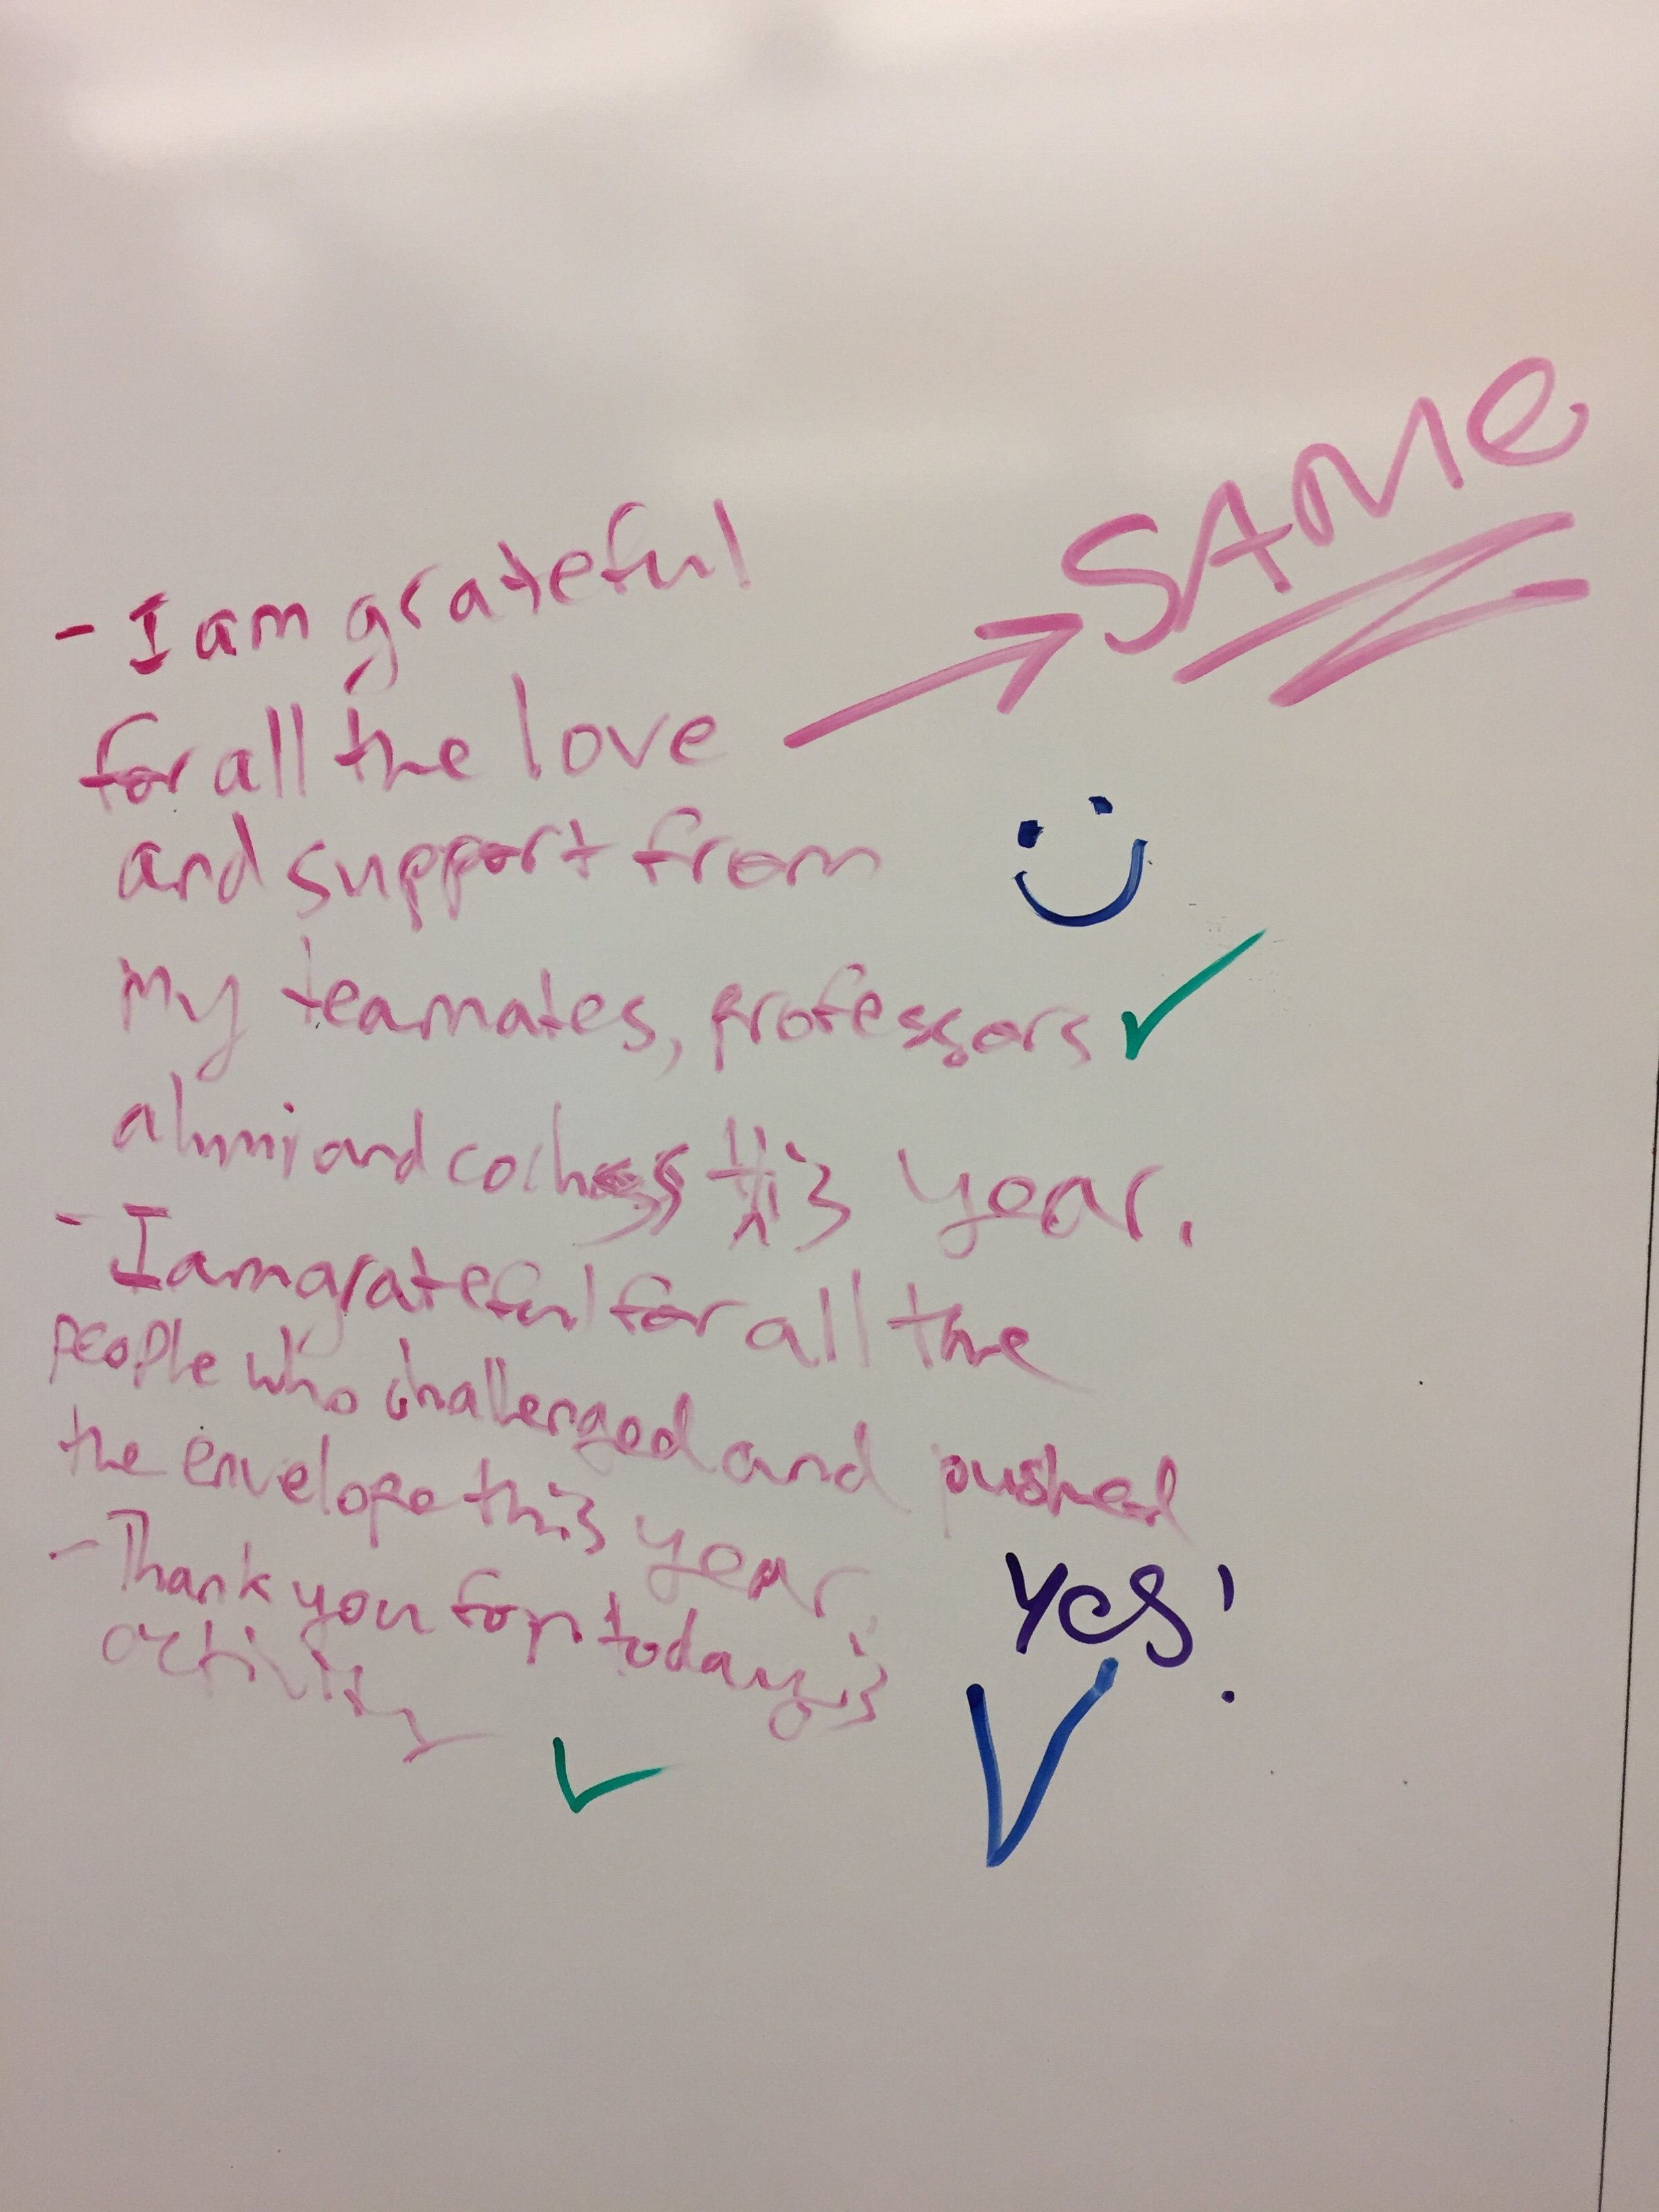 SAME
- I am grateful
for all the love
and support from
my teamates, professors
alumni and coches this year.
- I am grateful for all the
people who challenged and pushed
the envelope this year.
- Thank you for today's
activity
yes!